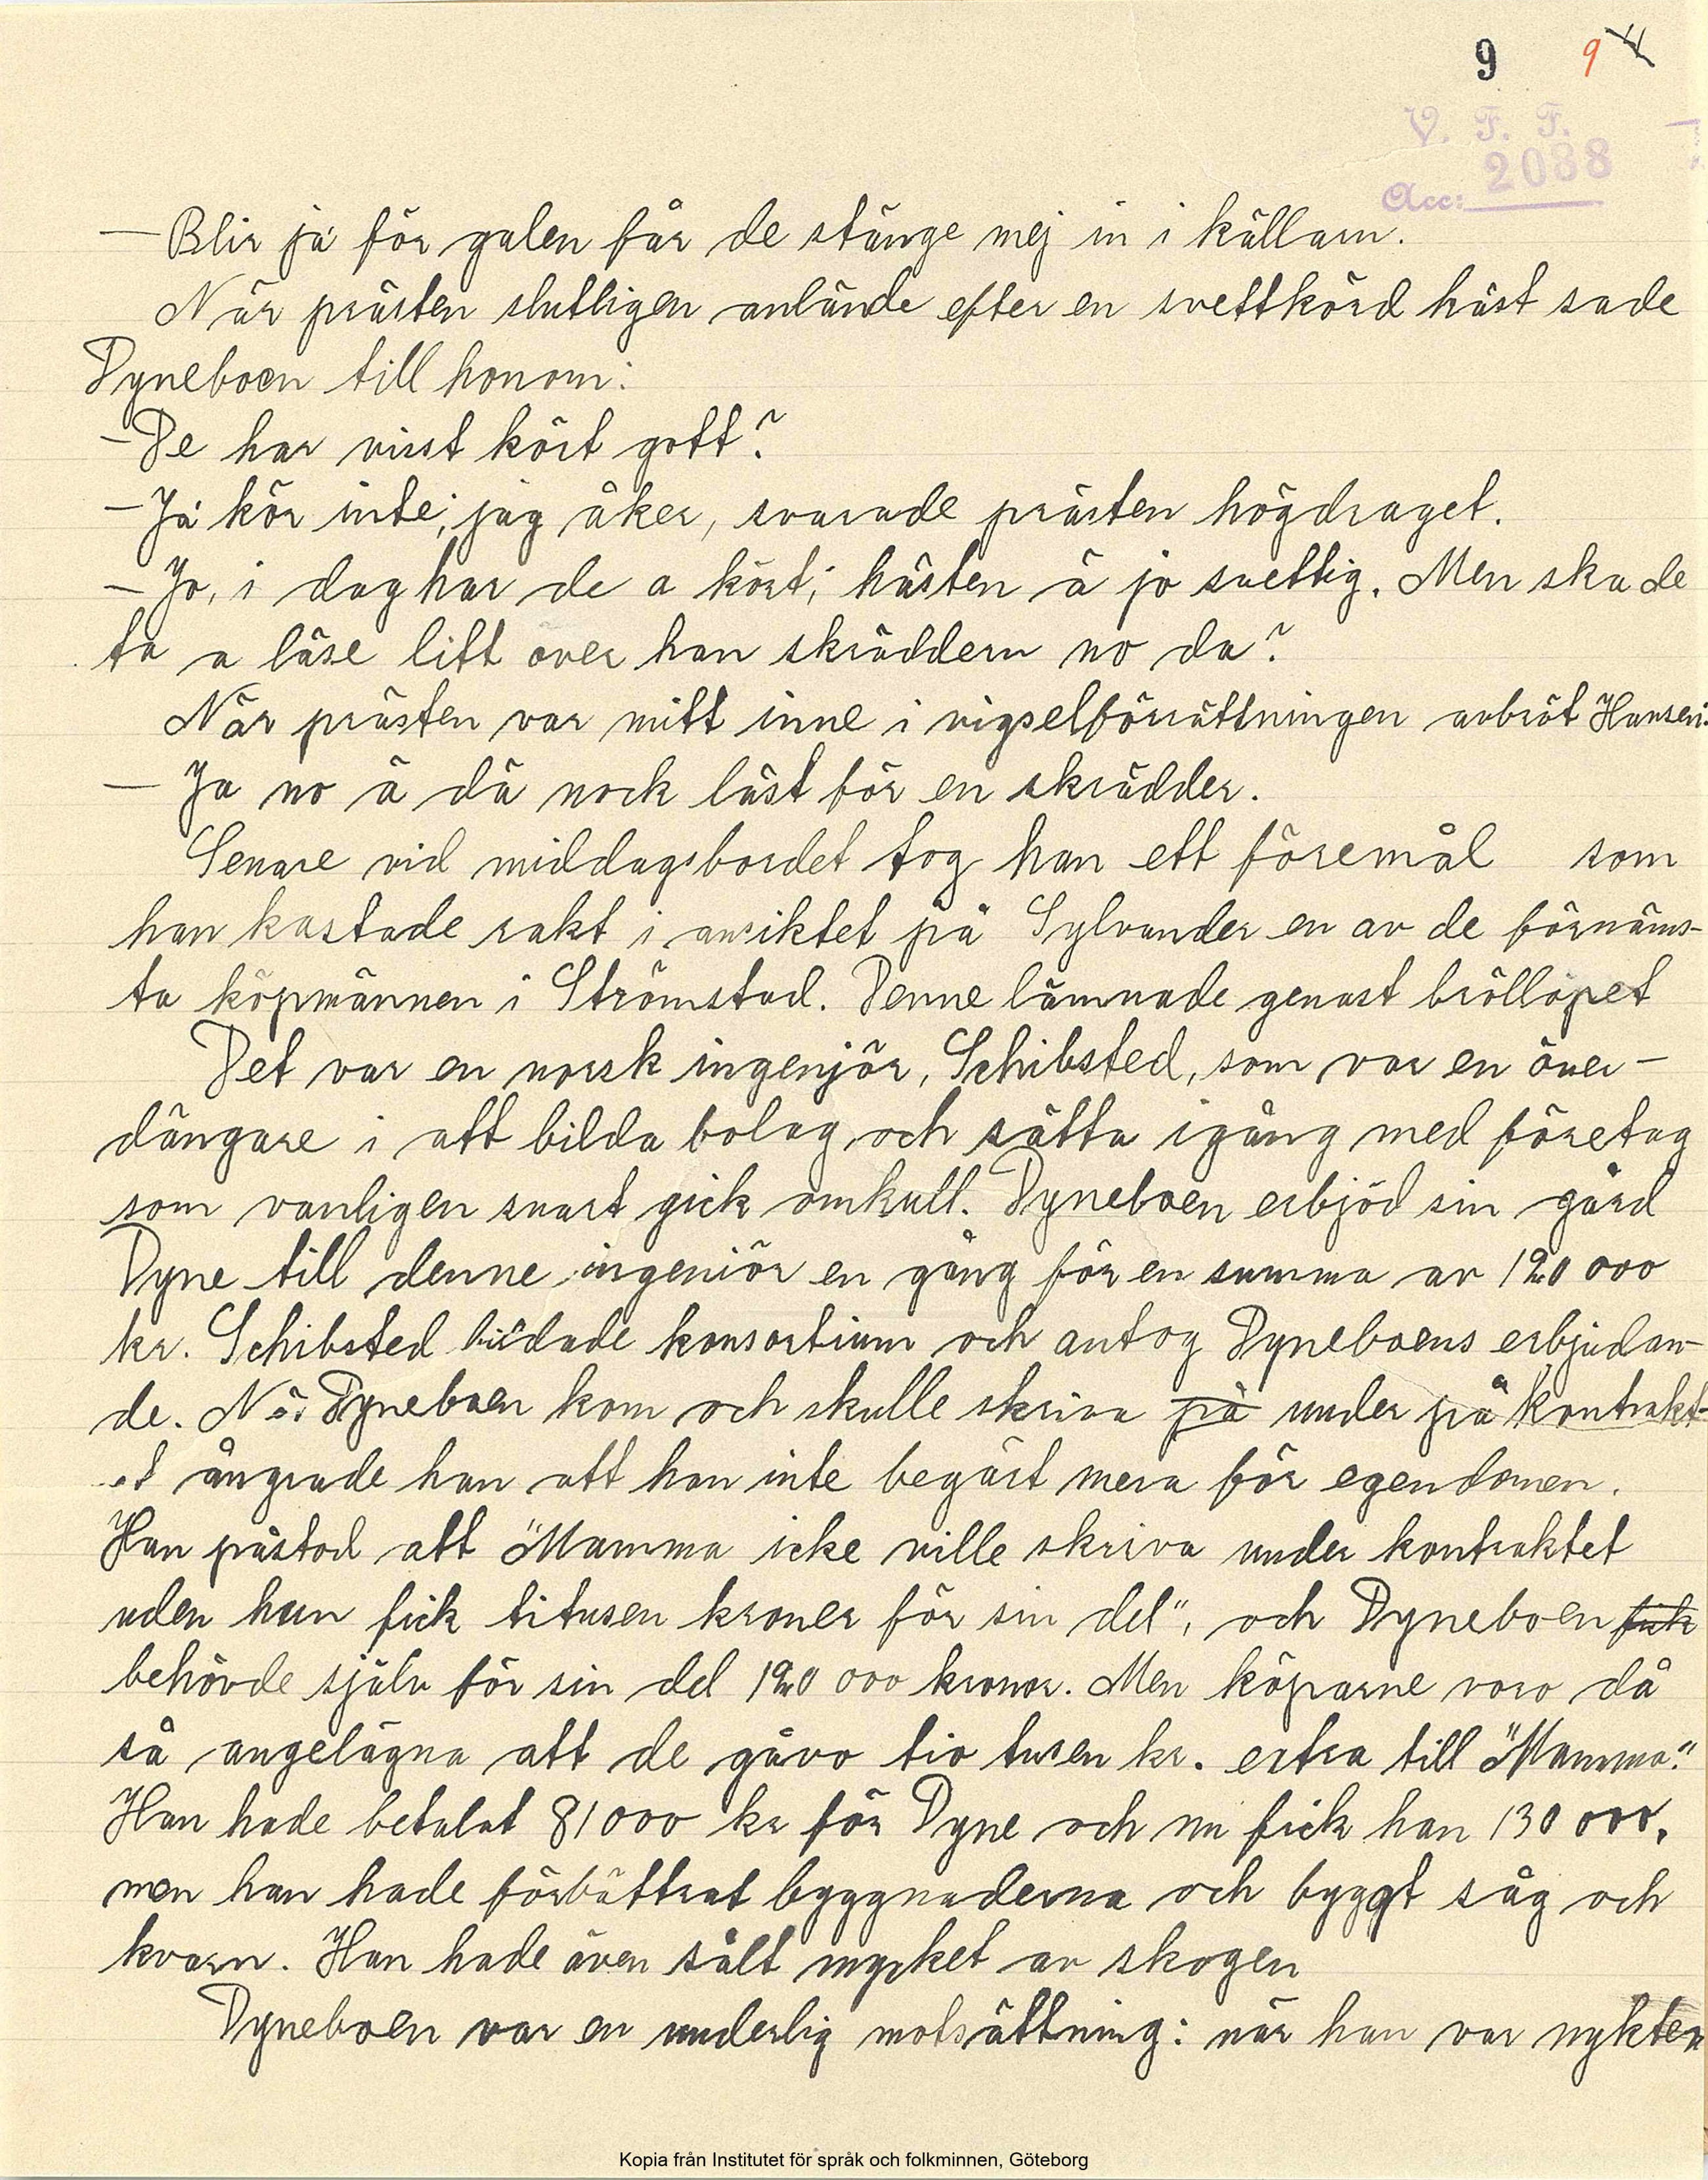 9 9 11
V. F. F.
Acc: 2088
— Blir ja för galen får de stänge mej in i källarn.
När prästen slutligen anlände efter en svettkörd häst sade
Dyneboen till honom:
— De har visst kört gott?
— Ja kör inte; jag åker, svarade prästen högdraget.
— Jo, i dag har de a kört; hästen ä jo svettig. Men ska de
ta a läse litt över han skräddern no da?
När prästen var mitt inne i vigselförrättningen avbröt Hansen:
— Ja no ä dä nock läst för en skrädder.
Senare vid middagsbordet tog han ett föremål som
han kastade rakt i ansiktet på Sylvander en av de förnäms-
ta köpmännen i Strömstad. Denne lämnade genast bröllopet
Det var en norsk ingenjör, Schibsted, som var en över-
dängare i att bilda bolag och sätta igång med företag
som vanligen snart gick omkull. Dyneboen erbjöd sin gård
Dyne till denne ingeniör en gång för en summa av 120 000
kr. Schibsted bildade konsortium och antog Dyneboens erbjudan-
de. När Dyneboen kom och skulle skriva på under på kontrakt-
et ångrade han att han inte begärt mera för egendomen.
Han påstod att "Mamma icke ville skriva under kontraktet
uden hun fick titusen kroner för sin del", och Dyneboen fick
behövde själv för sin del 120 000 kronor. Men köparne voro då
så angelägna att de gåvo tio tusen kr. extra till "Mamma."
Han hade betalat 81000 kr för Dyne och nu fick han 130 000,
men han hade förbättrat byggnaderna och byggt såg och
kvarn. Han hade även sålt mycket av skogen
Dyneboen var en underlig motsättning: när han var nykter
Kopia från Institutet för språk och folkminnen, Göteborg